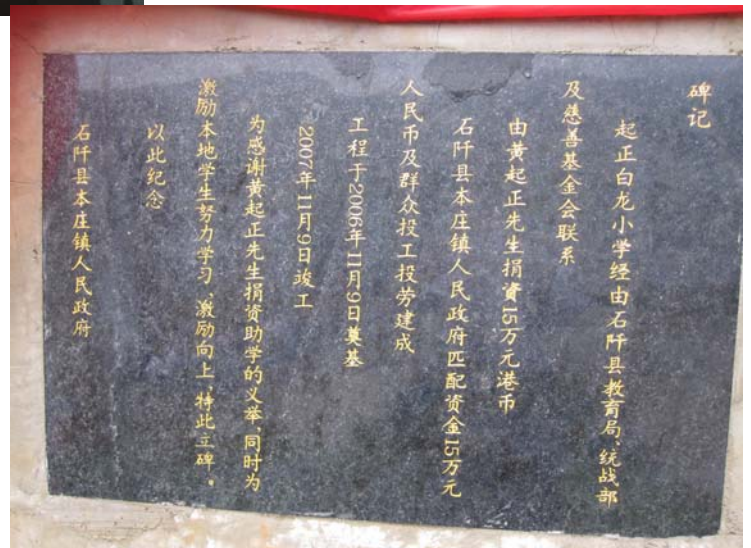 碑记
起正白龙小学经由石阡县教育局、统战部
及慈善基金会联系
由黄起正先生捐资15万元港币
石阡县本庄镇人民政府匹配资金15万元
人民币及群众投工投劳建成
工程于2006年11月9日奠基
2007年11月9日竣工
为感谢黄起正先生捐资助学的义举,同时为
激励本地学生努力学习、激励向上,特此立碑。
以此纪念
石阡县本庄镇人民政府